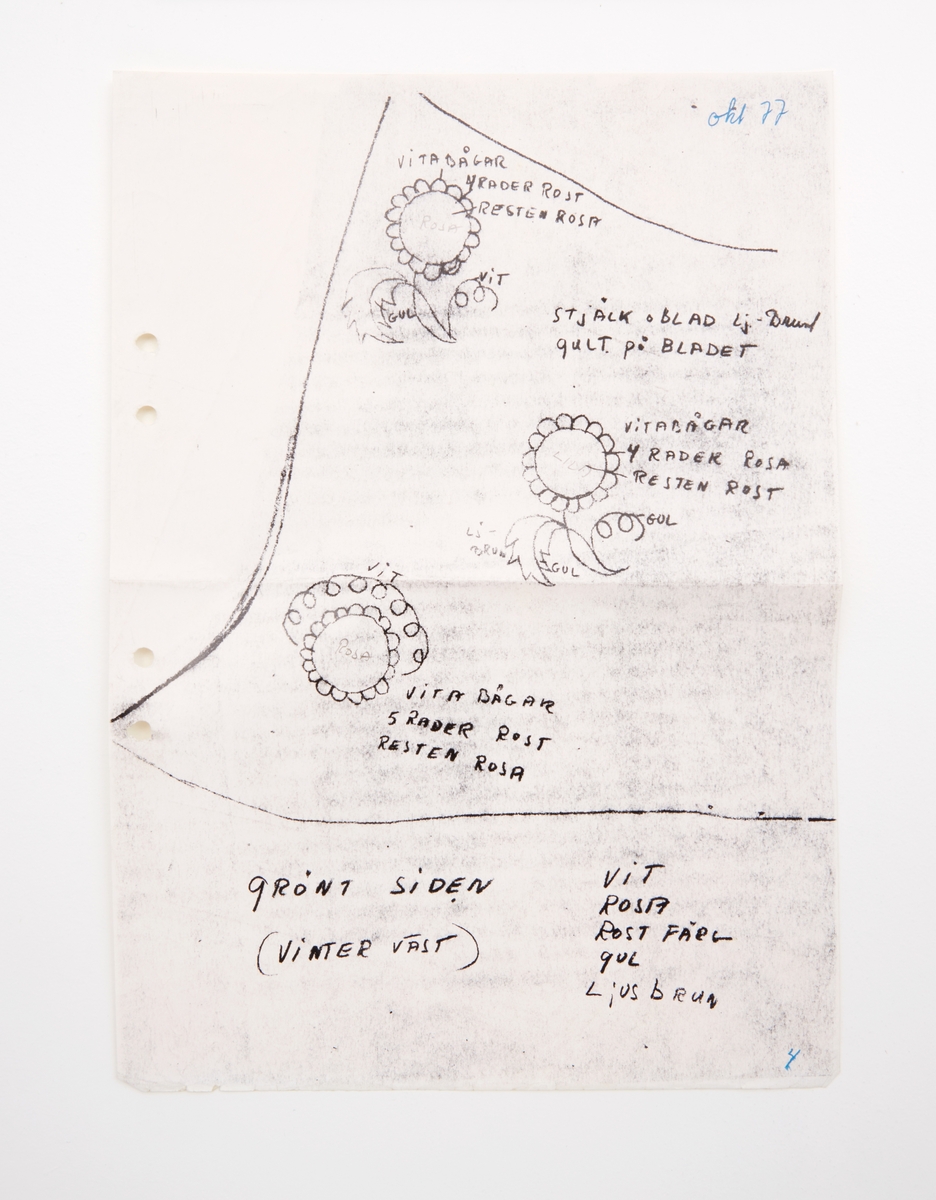 okt 77
ViTA BÅGAR
4 RADER ROST
RESTEN ROSA
ROSA
ViT
GUL
STJÄLK o BLAD Lj-Brunt
gULT på BLADET
ViTA BÅGAR
4 RADER ROSA
RESTEN ROST
GUL
Lj-
BRUN
GUL
ViT
ROSA
ViTA BÅGAR
5 RADER ROST
RESTEN ROSA
gRÖNT SiDEN
(ViNTER VÄST)
ViT
ROSA
ROST FÄRG
gUL
LjUS bRUN
4